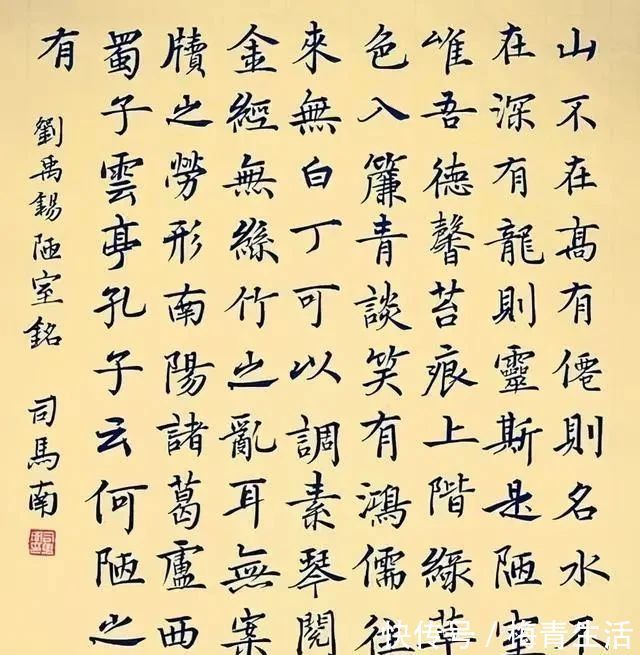 山不在高有僊則名水不
在深有龍則靈斯是陋室
唯吾德馨苔痕上階綠草
色入簾青談笑有鴻儒往
來無白丁可以調素琴閱
金經無絲竹之亂耳無案
牘之勞形南陽諸葛廬西
蜀子雲亭孔子云何陋之
有
劉禹錫陋室銘 司馬南
快传号 / 梅青生活